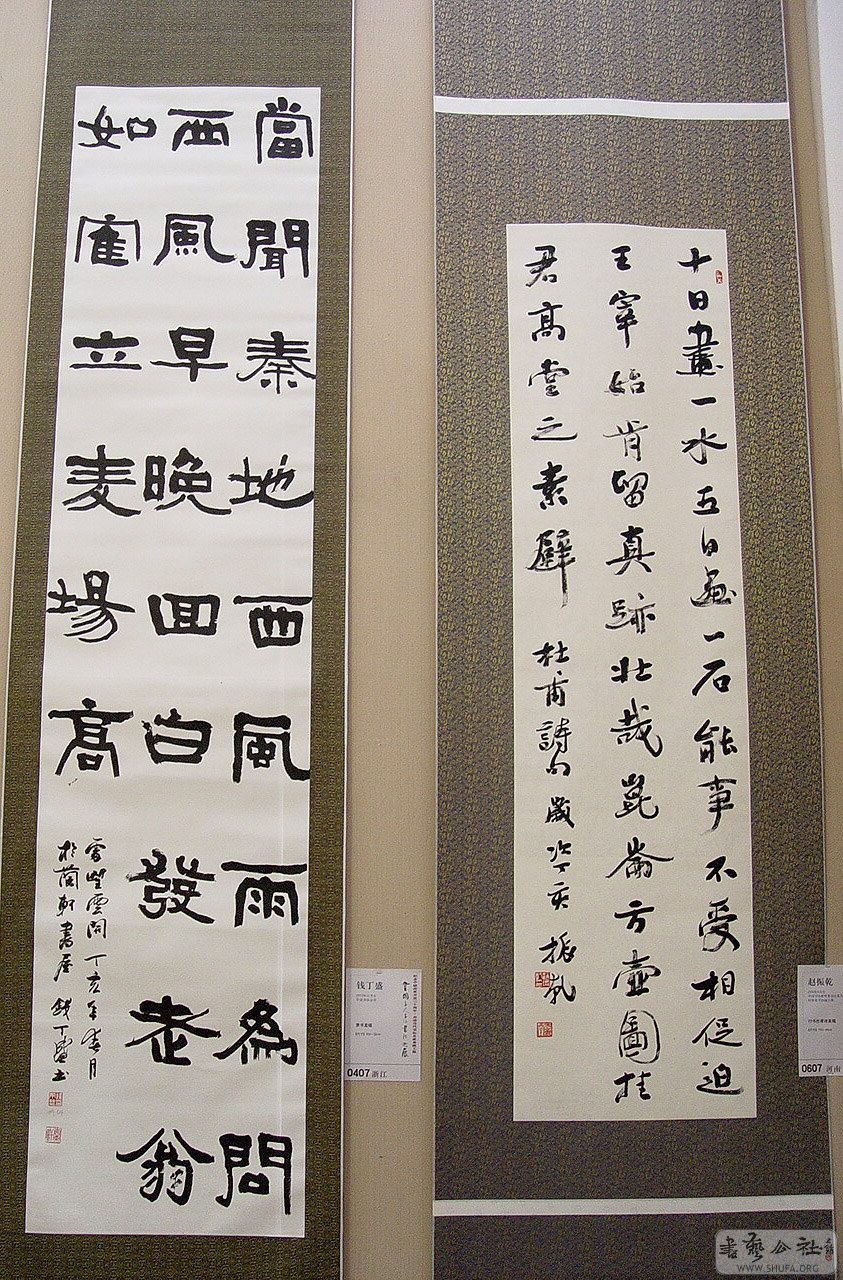 當聞秦地西風雨為問
西風早晚回白發老翁
如隺立麦場高
雲開丁亥年春月
軒書屋錢丁盛书
十日畫一水五日画一石能事不受相促迫
王宰始肯留真跡壯哉崑崙方壺圖挂
君高堂之素壁 杜甫詩句 歲次丁亥 振乾
钱丁盛
隶书直幅
0407 浙江
赵振乾
0607 河南
書藝公社
WWW.SHUFA.ORG